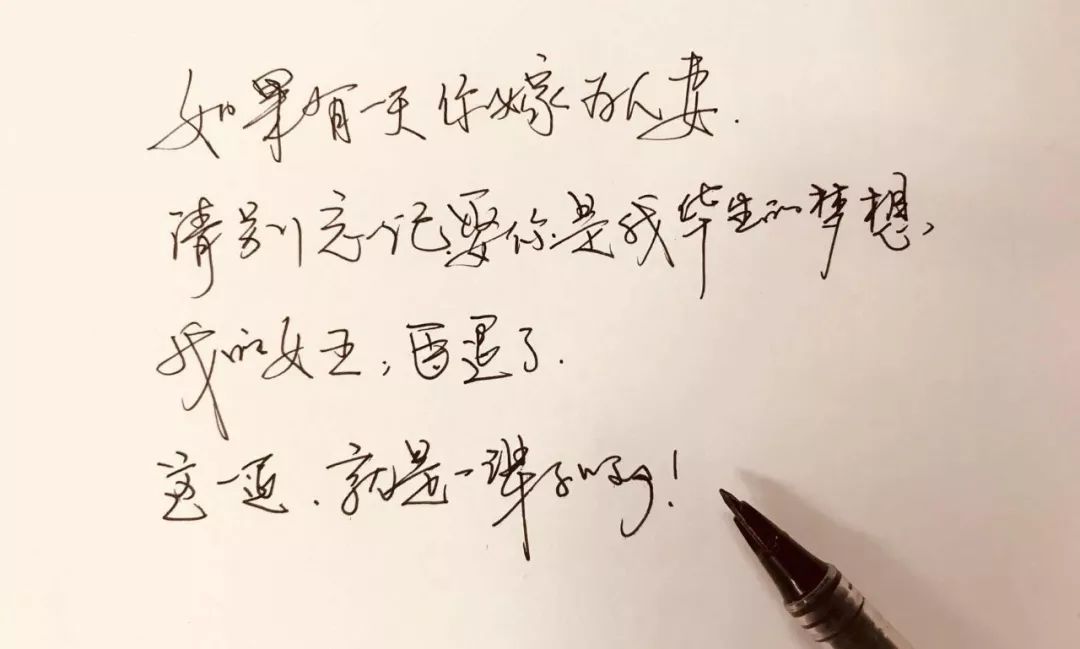 如果有一天你嫁为人妻.
请别忘记娶你是我毕生的梦想,
我的女王,臣退了.
这一退.就是一辈子啊!